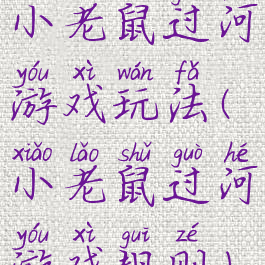 小老鼠过河
yóu xì wán fǎ
游戏玩法(
xiǎo lǎo shǔ guò hé
小老鼠过河
yóu xì guī zé
游戏规则)